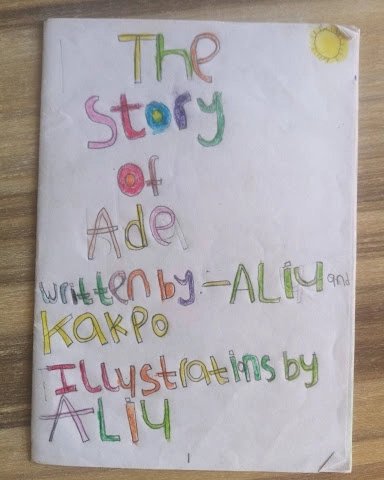 The
Story
of
Ade
written by:-ALiy and
KaKpo
Illystratins by
ALiy